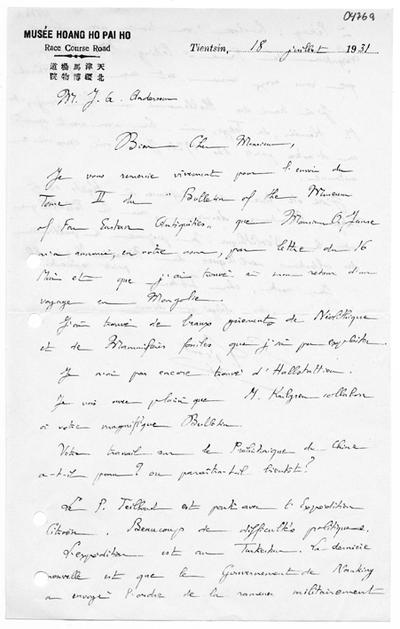 04769
MUSÉE HOANG HO PAI HO
Race Course Road
天津馬場道
北疆博物院
Tientsin, 18 juillet 1931
M. J. G. Andersson
Bien Cher Monsieur,
Je vous remercie vivement pour l'envoi du
Tome II du "Bulletin of the Museum
of Far Eastern Antiquities" que Monsieur O. Janse
m'a annoncé, en votre nom, par lettre du 16
Mai et que j'ai trouvé à mon retour d'un
voyage en Mongolie.
J'ai trouvé de beaux gisements de Néolithique
et de Mammifères fossiles que j'ai pu exploiter.
Je n'ai pas encore trouvé d'
Je vois avec plaisir que M. Karlgren collabore
à votre magnifique Bulletin.
Votre travail sur le Préhistorique de Chine
a-t-il paru? ou paraîtra-t-il bientôt?
Le P. Teilhard est parti avec l'Expédition
Citroën. Beaucoup de difficultés politiques.
L'expédition est au Turkestan. La dernière
nouvelle est que le Gouvernement de Nanking
a envoyé l'ordre de la ramener militairement